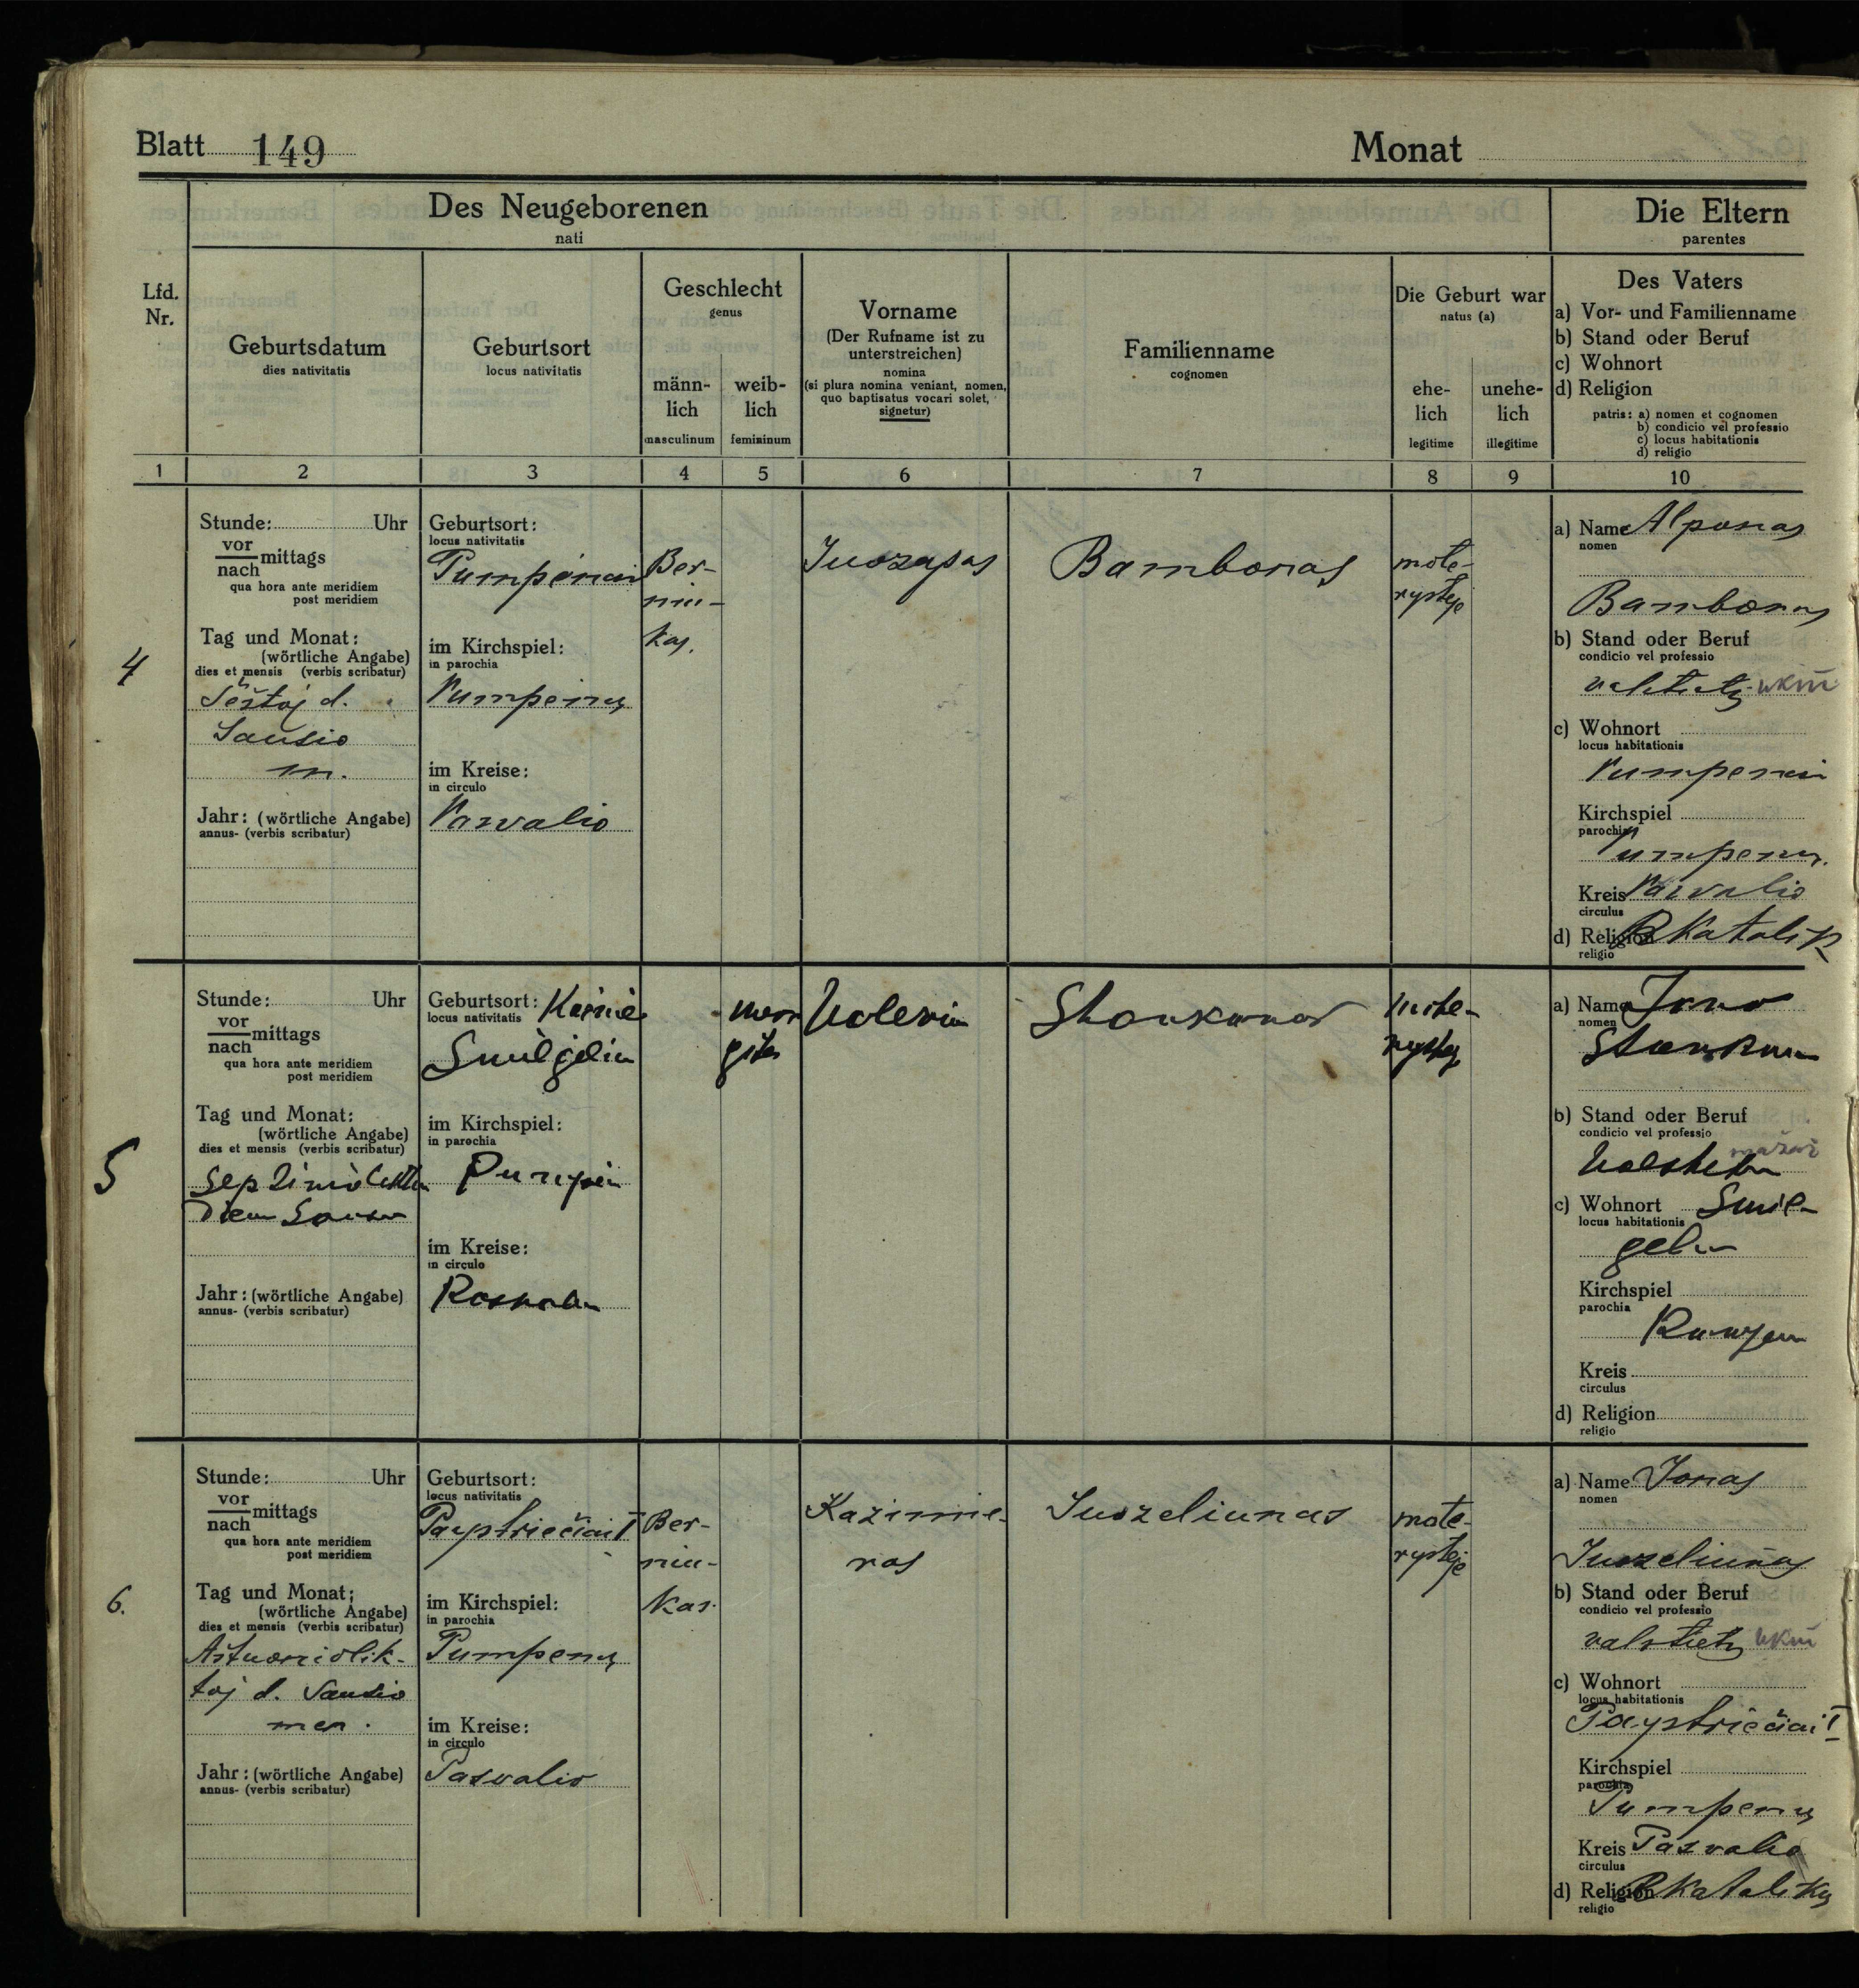 Blatt 149
Monat
Des Neugeborenen
nati
Die Eltern
parentes
Lfd.
Nr.
Geburtsdatum
dies nativitatis
Geburtsort
locus nativitatis
Geschlecht
genus
männ-
lich
masculinum
weib-
lich
femininum
Vorname
(Der Rufname ist zu
unterstreichen)
nomina
(si plura nomina veniant, nomen,
quo baptisatus vocari solet,
signetur)
Familienname
cognomen
Die Geburt war
natus (a)
ehe-
lich
legitime
unehe-
lich
illegitime
Des Vaters
a) Vor- und Familienname
b) Stand oder Beruf
c) Wohnort
d) Religion
patris: a) nomen et cognomen
b) condicio vel professio
c) locus habitationis
d) religio
1 2 3 4 5 6 7 8 9 10
4
Stunde: Uhr
vor
nach mittags
qua hora ante meridiem
post meridiem
Tag und Monat:
(wörtliche Angabe)
dies et mensis (verbis scribatur)
Šeštoj d.
Sausio
m.
Jahr: (wörtliche Angabe)
annus- (verbis scribatur)
Geburtsort:
locus nativitatis
Pumpėnai
im Kirchspiel:
in parochia
Pumpėnų
im Kreise:
in circulo
Pasvalio
Ber-
niu-
kas.
Juozapas
Bambonas
mote-
rystėje
a) Name Alponas
nomen
Bambonas
b) Stand oder Beruf
condicio vel professio
valstietis ukin
c) Wohnort
locus habitationis
Pumpenai
Kirchspiel
parochia
Pumpenų
Kreis Pasvalio
circulus
d) Religion R Katalik
religio
5
Stunde: Uhr
vor
nach mittags
qua hora ante meridiem
post meridiem
Tag und Monat:
(wörtliche Angabe)
dies et mensis (verbis scribatur)
Jahr: (wörtliche Angabe)
annus- (verbis scribatur)
Geburtsort:
locus nativitatis
Smilgelių
im Kirchspiel:
in parochia
im Kreise:
in circulo
mer
gite
Valeria
mote-
rystėj
a) Name Jono
nomen
b) Stand oder Beruf
condicio vel professio
mažaž
c) Wohnort Smil-
locus habitationis
gelių
Kirchspiel
parochia
Kreis
circulus
d) Religion
religio
6.
Stunde: Uhr
vor
nach mittags
qua hora ante meridiem
post meridiem
Tag und Monat:
(wörtliche Angabe)
dies et mensis (verbis scribatur)
Aštuoniolik-
toj d. Sausio
men.
Jahr: (wörtliche Angabe)
annus- (verbis scribatur)
Geburtsort:
locus nativitatis
Paystriečiai I
im Kirchspiel:
in parochia
Pumpenų
im Kreise:
in circulo
Pasvalio
Ber-
niu-
kas.
Kazimie-
ras
Juozeliunas
mote-
rystėje
a) Name Jonas
nomen
Juozeliunas
b) Stand oder Beruf
condicio vel professio
valstietis ukin
c) Wohnort
locus habitationis
Paystriečiai I
Kirchspiel
parochia
Pumpenų
Kreis Pasvalio
circulus
d) Religion R Katalikų
religio